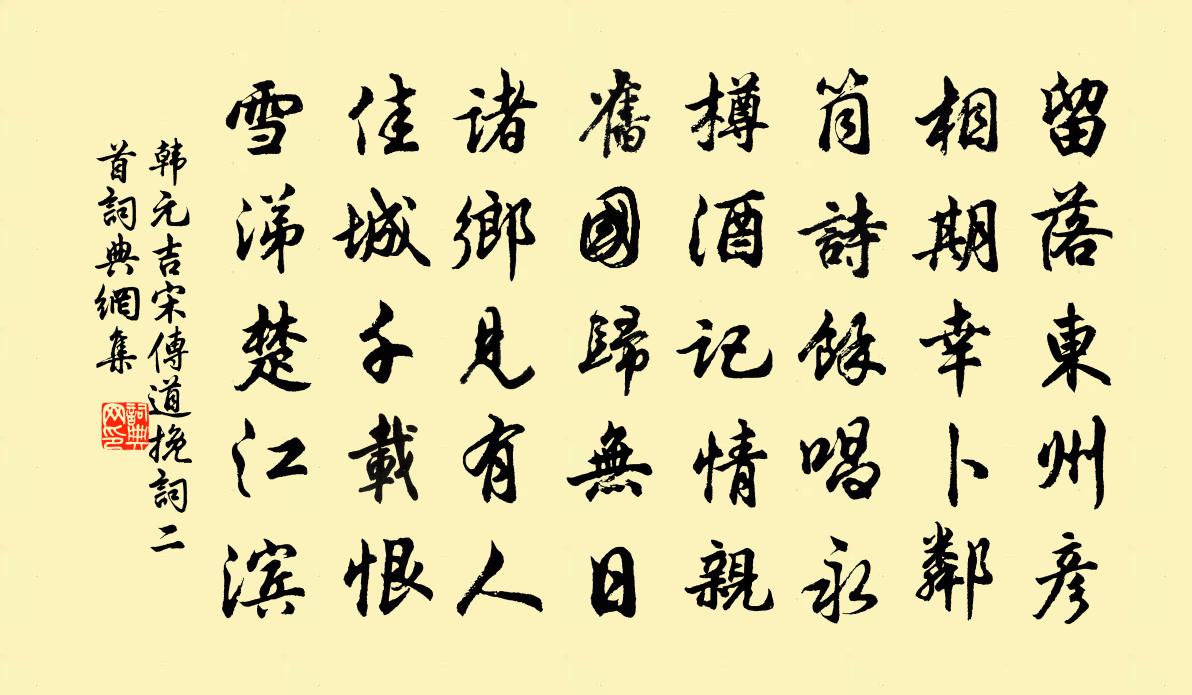 留落東州彦
相期幸卜鄰
筒詩餘唱永
樽酒記情親
舊國歸無日
諸鄉見有人
佳城千載恨
雪涕楚江滨
韩元吉宋傅道挽詞二
首詞典網集
詞典网印